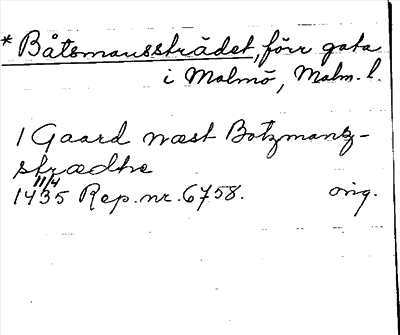 * Båtsmanssträdet, förr gata
i Malmö, Malm. l.
1 Gaard wæst Botzmantz-
strædhe
11/4
1435 Rep. nr. 6758. orig.